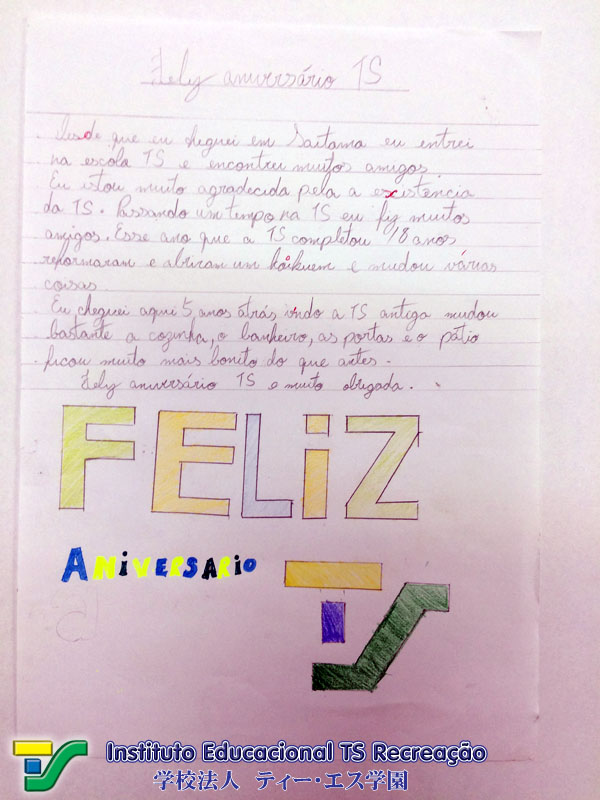 Feliz aniversário TS
Desde que eu cheguei em Saitama eu entrei
na escola TS e encontrei muitos amigos.
Eu estou muito agradecida pela a existência
da TS. Passando um tempo na TS eu fiz muitos
amigos. Esse ano que a TS completou 18 anos
reformaram e abriram um hoikuem e mudou várias
coisas
Eu cheguei aqui 5, anos atrás, vindo a TS antiga mudou
bastante a cozinha, o banheiro, as portas e o pátio
ficou muito mais bonito do que antes.
Feliz aniversário TS e muito obrigada.
FELiZ
ANiVERSARiO
TS
Instituto Educacional TS Recreação
学校法人 ティー・エス学園